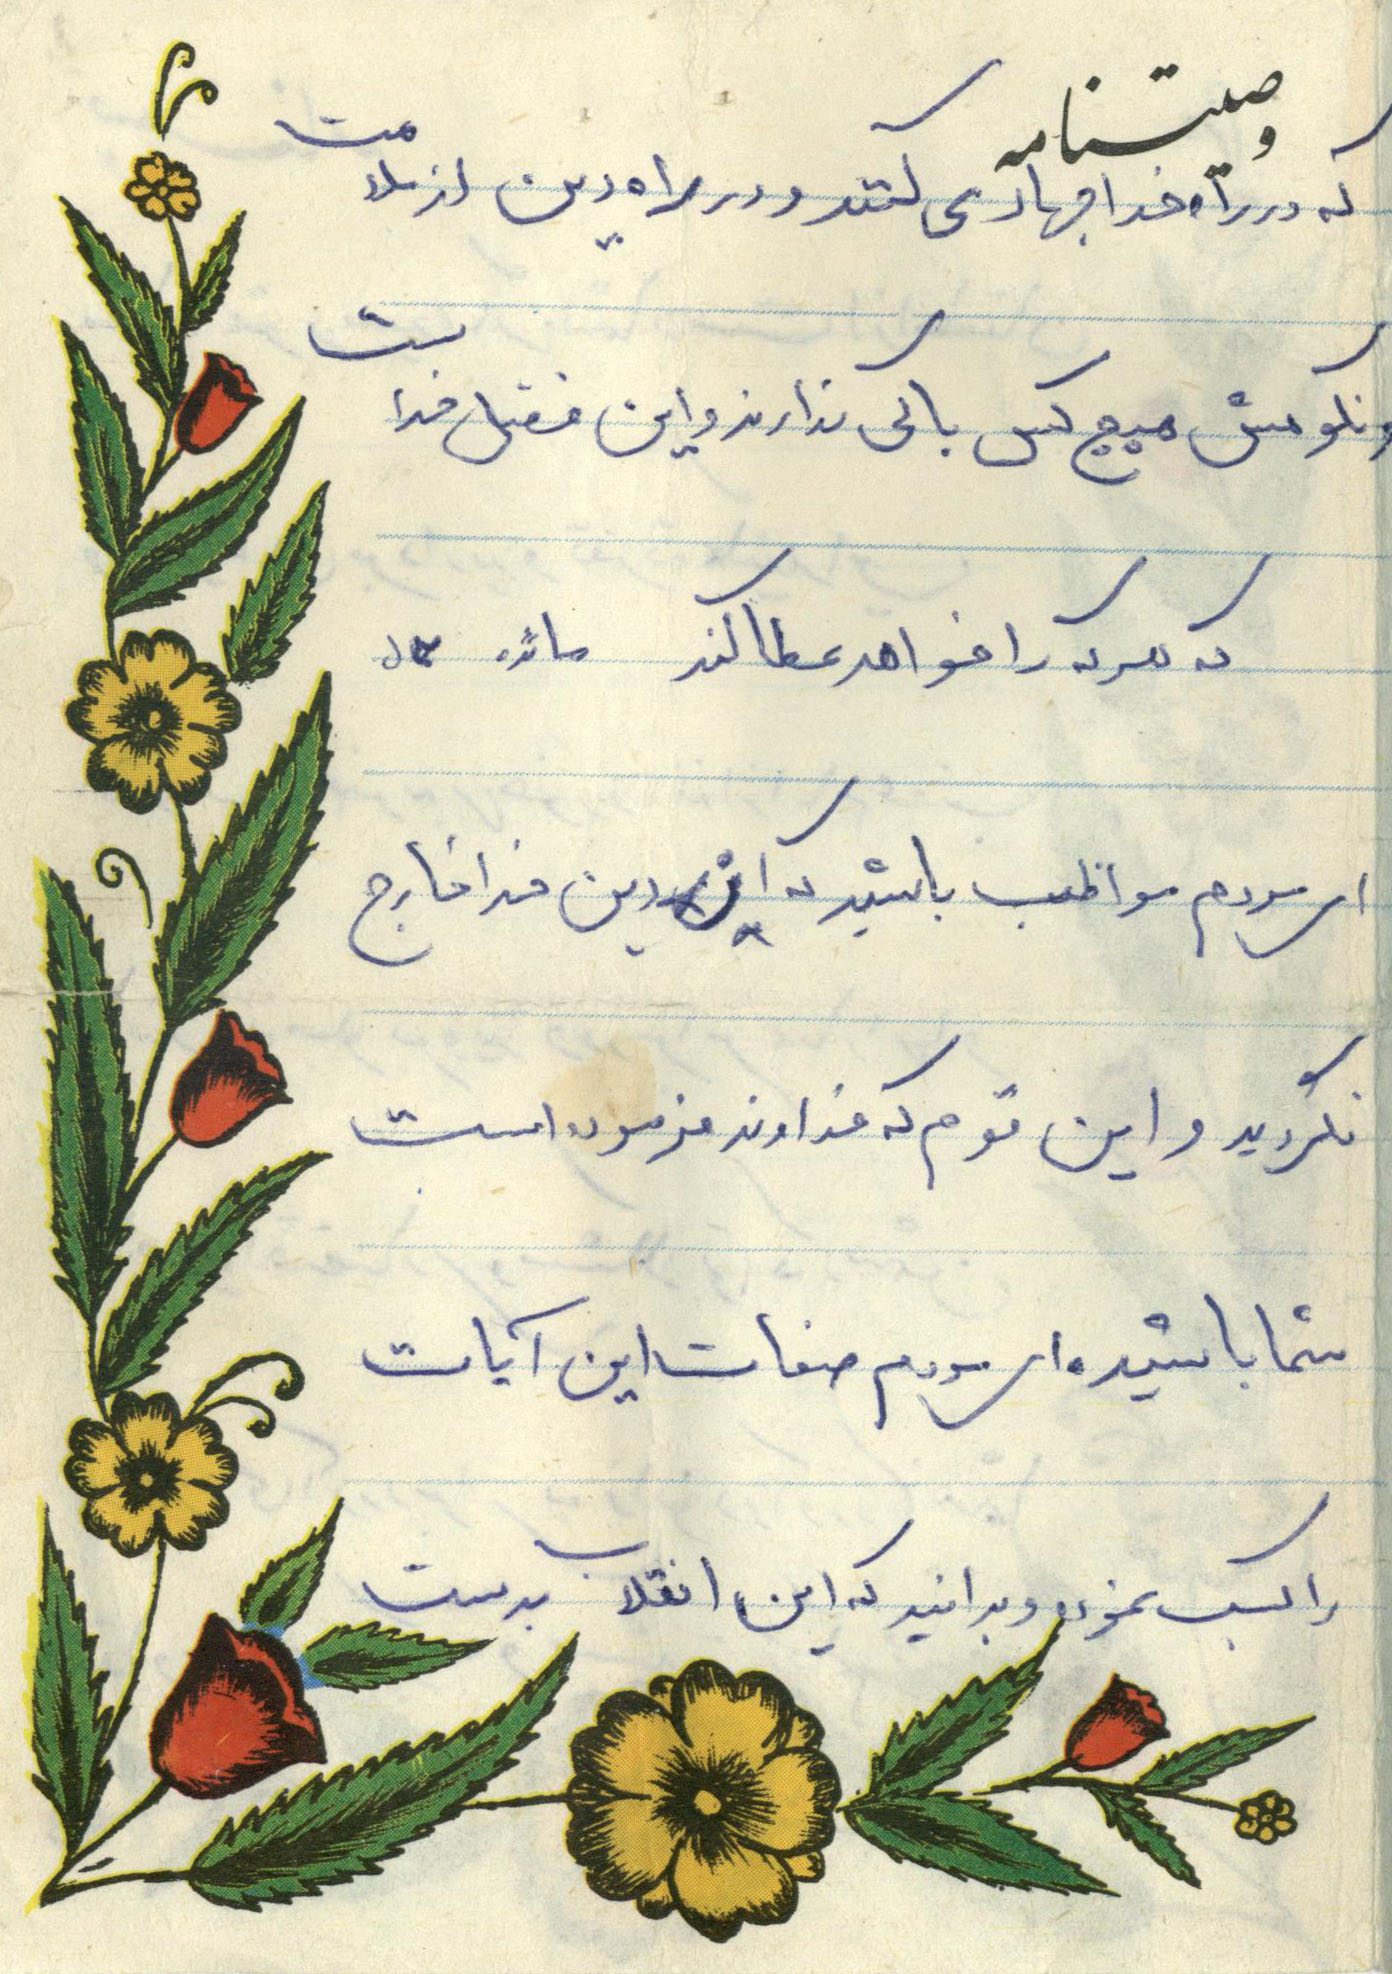 وصیتنامه
که در راه خدا جهاد می کنند و در راه دین از ملامت
و نکوهش هیچ کس باکی ندارند و این فضل خداست
که هر که را خواهد عطا کند مائده
ای مردم مواظب باشید که از دین خدا خارج
نگردید و این قوم که خداوند فرموده است
شما باشید. ای مردم صفات این آیات
را کسب نموده و بدانید که این انقلاب بدست